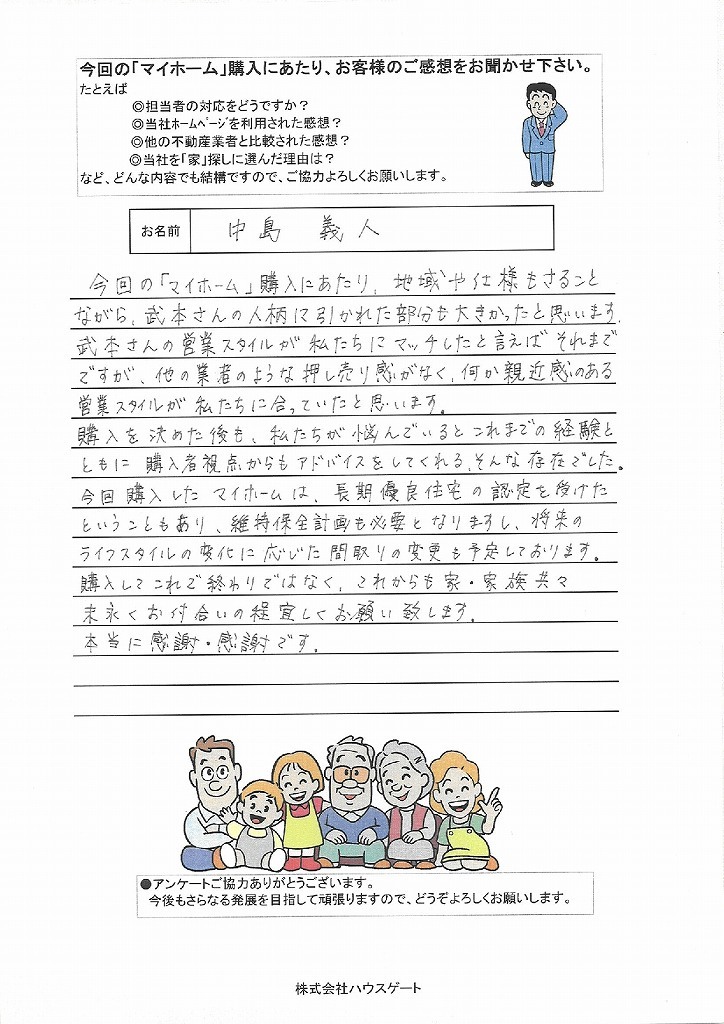 今回の「マイホーム」購入にあたり、お客様のご感想をお聞かせ下さい。
たとえば
◎担当者の対応をどうですか？
◎当社ﾎｰﾑﾍﾟｰｼﾞを利用された感想？
◎他の不動産業者と比較された感想？
◎当社を「家」探しに選んだ理由は？
など、どんな内容でも結構ですので、ご協力よろしくお願いします。
お名前 中島 義人
今回の「マイホーム」購入にあたり、地域や仕様もさること
ながら、武本さんの人柄に引かれた部分も大きかったと思います。
武本さんの営業スタイルが私たちにマッチしたと言えばそれまで
ですが、他の業者のような押し売り感がなく、何か親近感のある
営業スタイルが私たちに合っていたと思います。
購入を決めた後も、私たちが悩んでいるとこれまでの経験と
ともに購入者視点からもアドバイスをしてくれる、そんな存在でした。
今回購入したマイホームは、長期優良住宅の認定を受けた
ということもあり、維持保全計画も必要となりますし、将来の
ライフスタイルの変化に応じた間取りの変更も予定しております。
購入してこれで終わりではなく、これからも家・家族共々
末永くお付合いの程宜しくお願い致します。
本当に感謝・感謝です。
●アンケートご協力ありがとうございます。
今後もさらなる発展を目指して頑張りますので、どうぞよろしくお願いします。
株式会社ハウスゲート